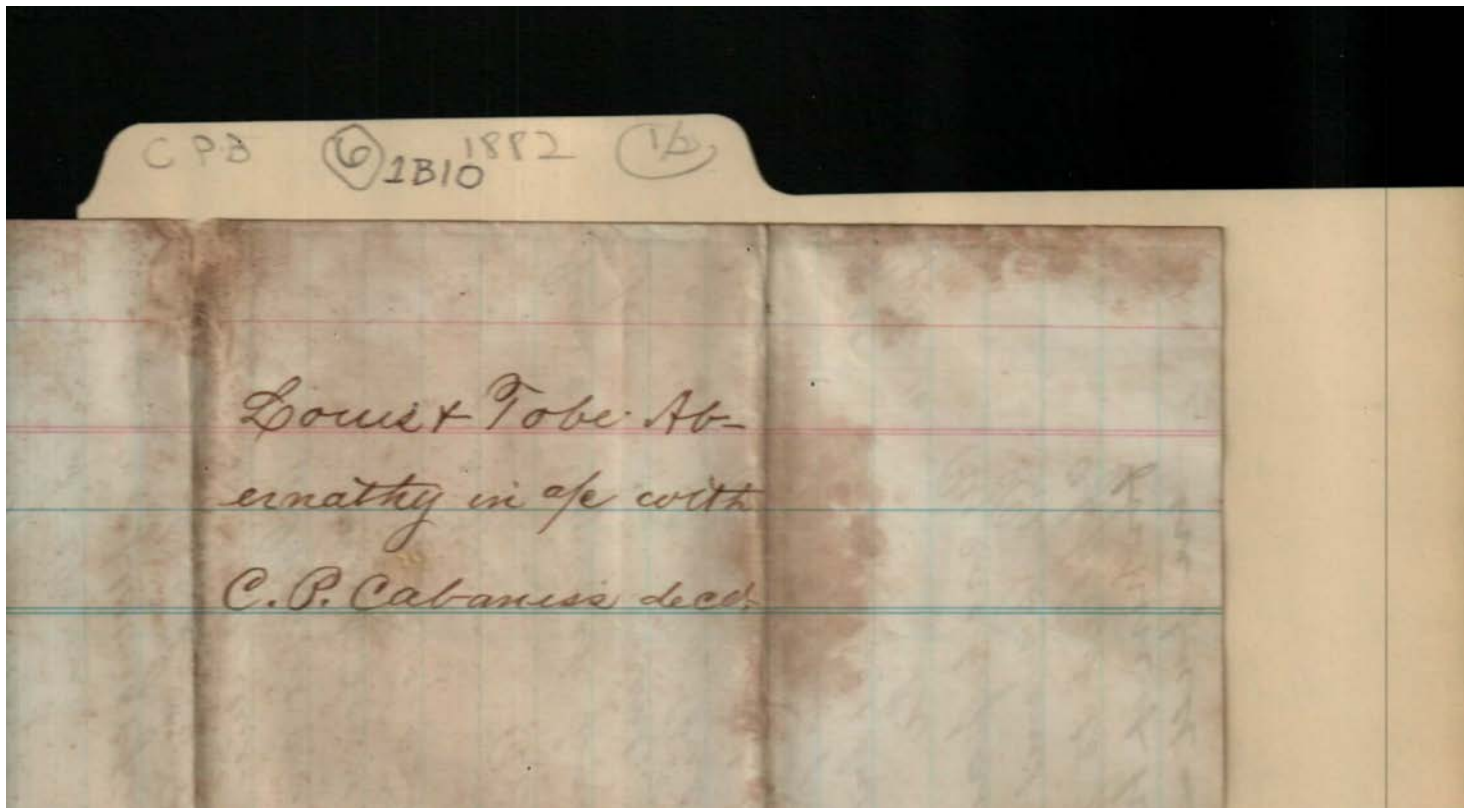 C P B 6 1B10 1882
Louis & Tobe Ab-
ernathy in a/c with
C. P. Cabaniss decd.